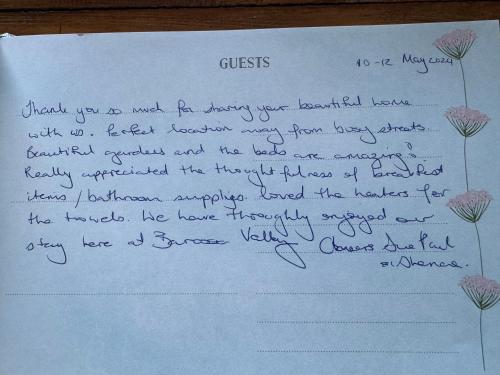 GUESTS
10-12 May 2024
Thank you so much for sharing your beautiful home
with us. Perfect location away from busy streets.
Beautiful gardens and the beds are amazing!
Really appreciated the thoughtfulness of breakfast
items/bathroom supplies. Loved the heaters for
the towels. We have throughly enjoyed our
stay here at Barossa Valley Cheers Sue Paul